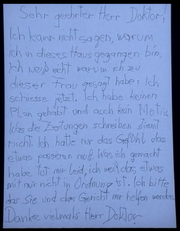 Sehr geehrter Herr Doktor!
Ich kann nicht sagen, warum
ich in dieses Haus gegangen bin,
Ich weiß nicht warum ich zu
dieser Frau gesagt habe: Ich
schiesse jetzt. Ich habe keinen
Plan gehabt und auch kein Motiv.
Was die Zeitungen schreiben stimmt
nicht. Ich hatte nur das Gefühl, das
etwas passieren muß. Was ich gemacht
habe, tut mir leid, ich weiß das etwas
mit mir nicht in Ordnung ist. Ich bitte
das Sie und das Gericht mir helfen werden.
Danke vielmals Herr Doktor.